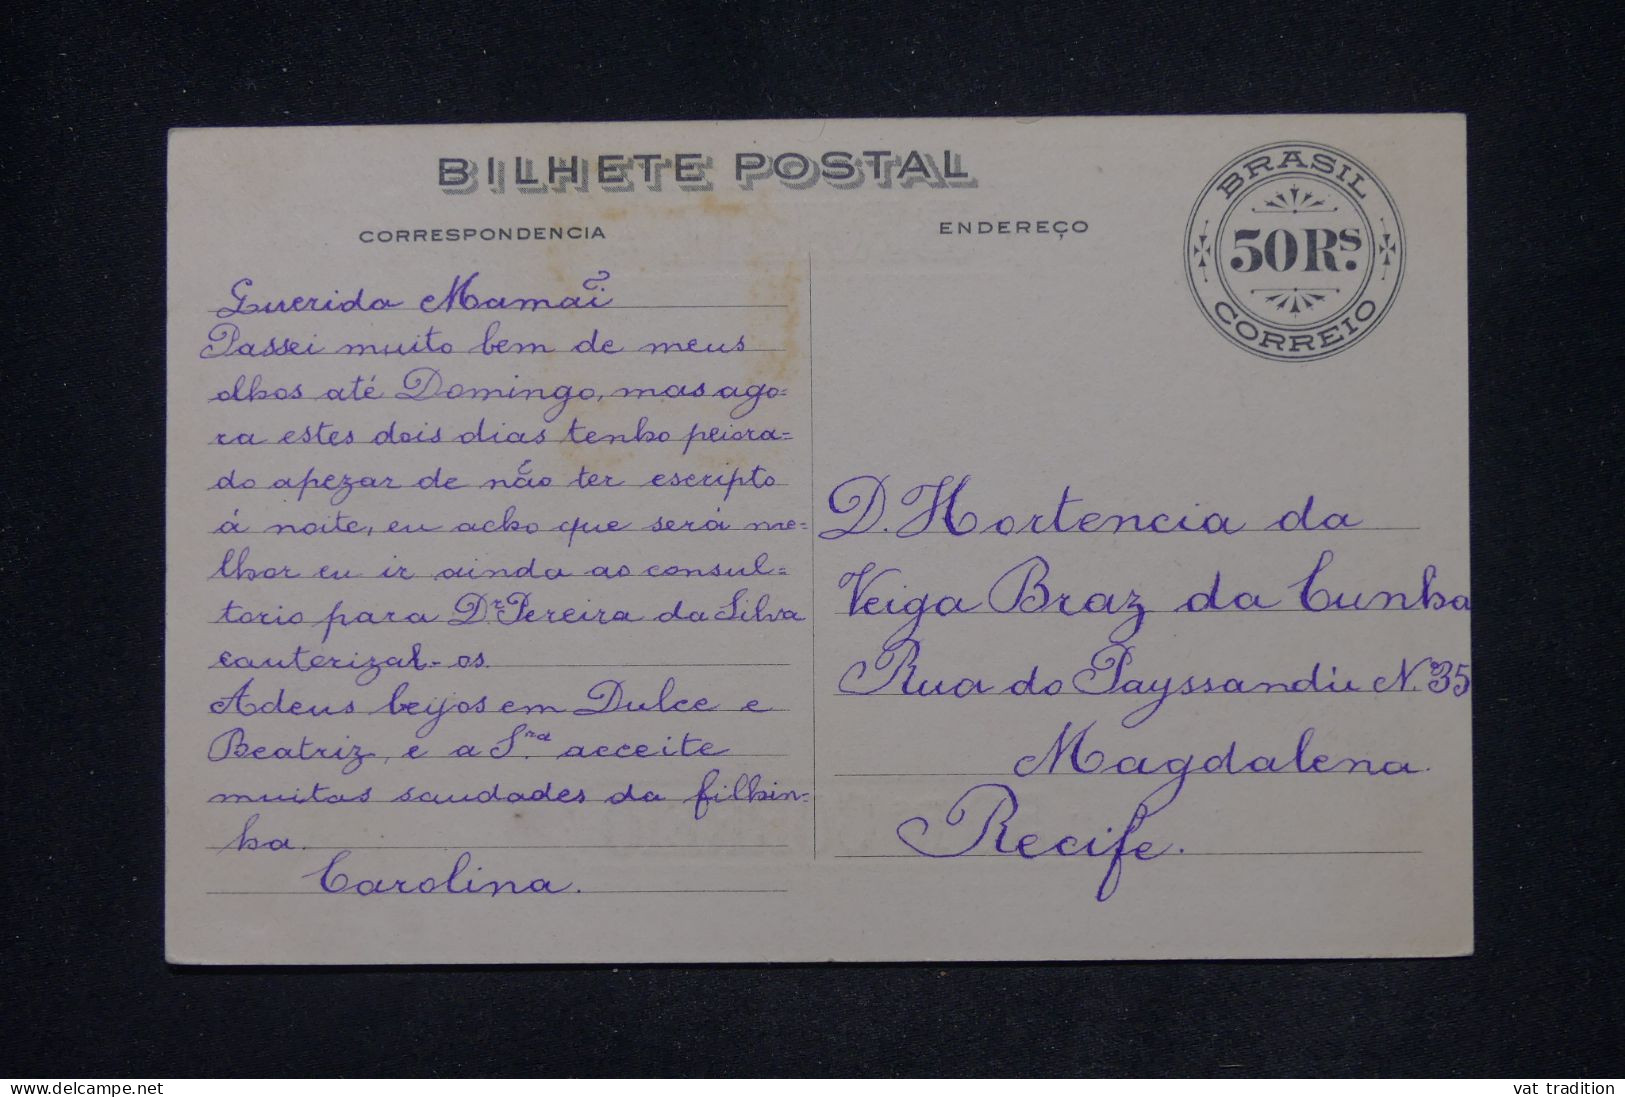 BILHETE POSTAL
CORRESPONDENCIA
ENDEREÇO
BRASIL
50 RS.
CORREIO
Querida Mamãi
Passei muito bem de meus
olhos até Domingo, mas ago=
ra estes dois dias tenho peiora=
do apezar de não ter escripto
á noite, eu acho que será me=
lhor eu ir ainda ao consul=
torio para Dr. Pereira da Silva
cauterizal-os.
Adeus beijos em Dulce e
Beatriz, e a Sra. acceite
muitas saudades da filhin=
ha.
Carolina.
D. Hortencia da
Veiga Braz da Cunha
Rua do Payssandú N.º 35
Magdalena.
Recife.
www.delcampe.net
vat_tradition